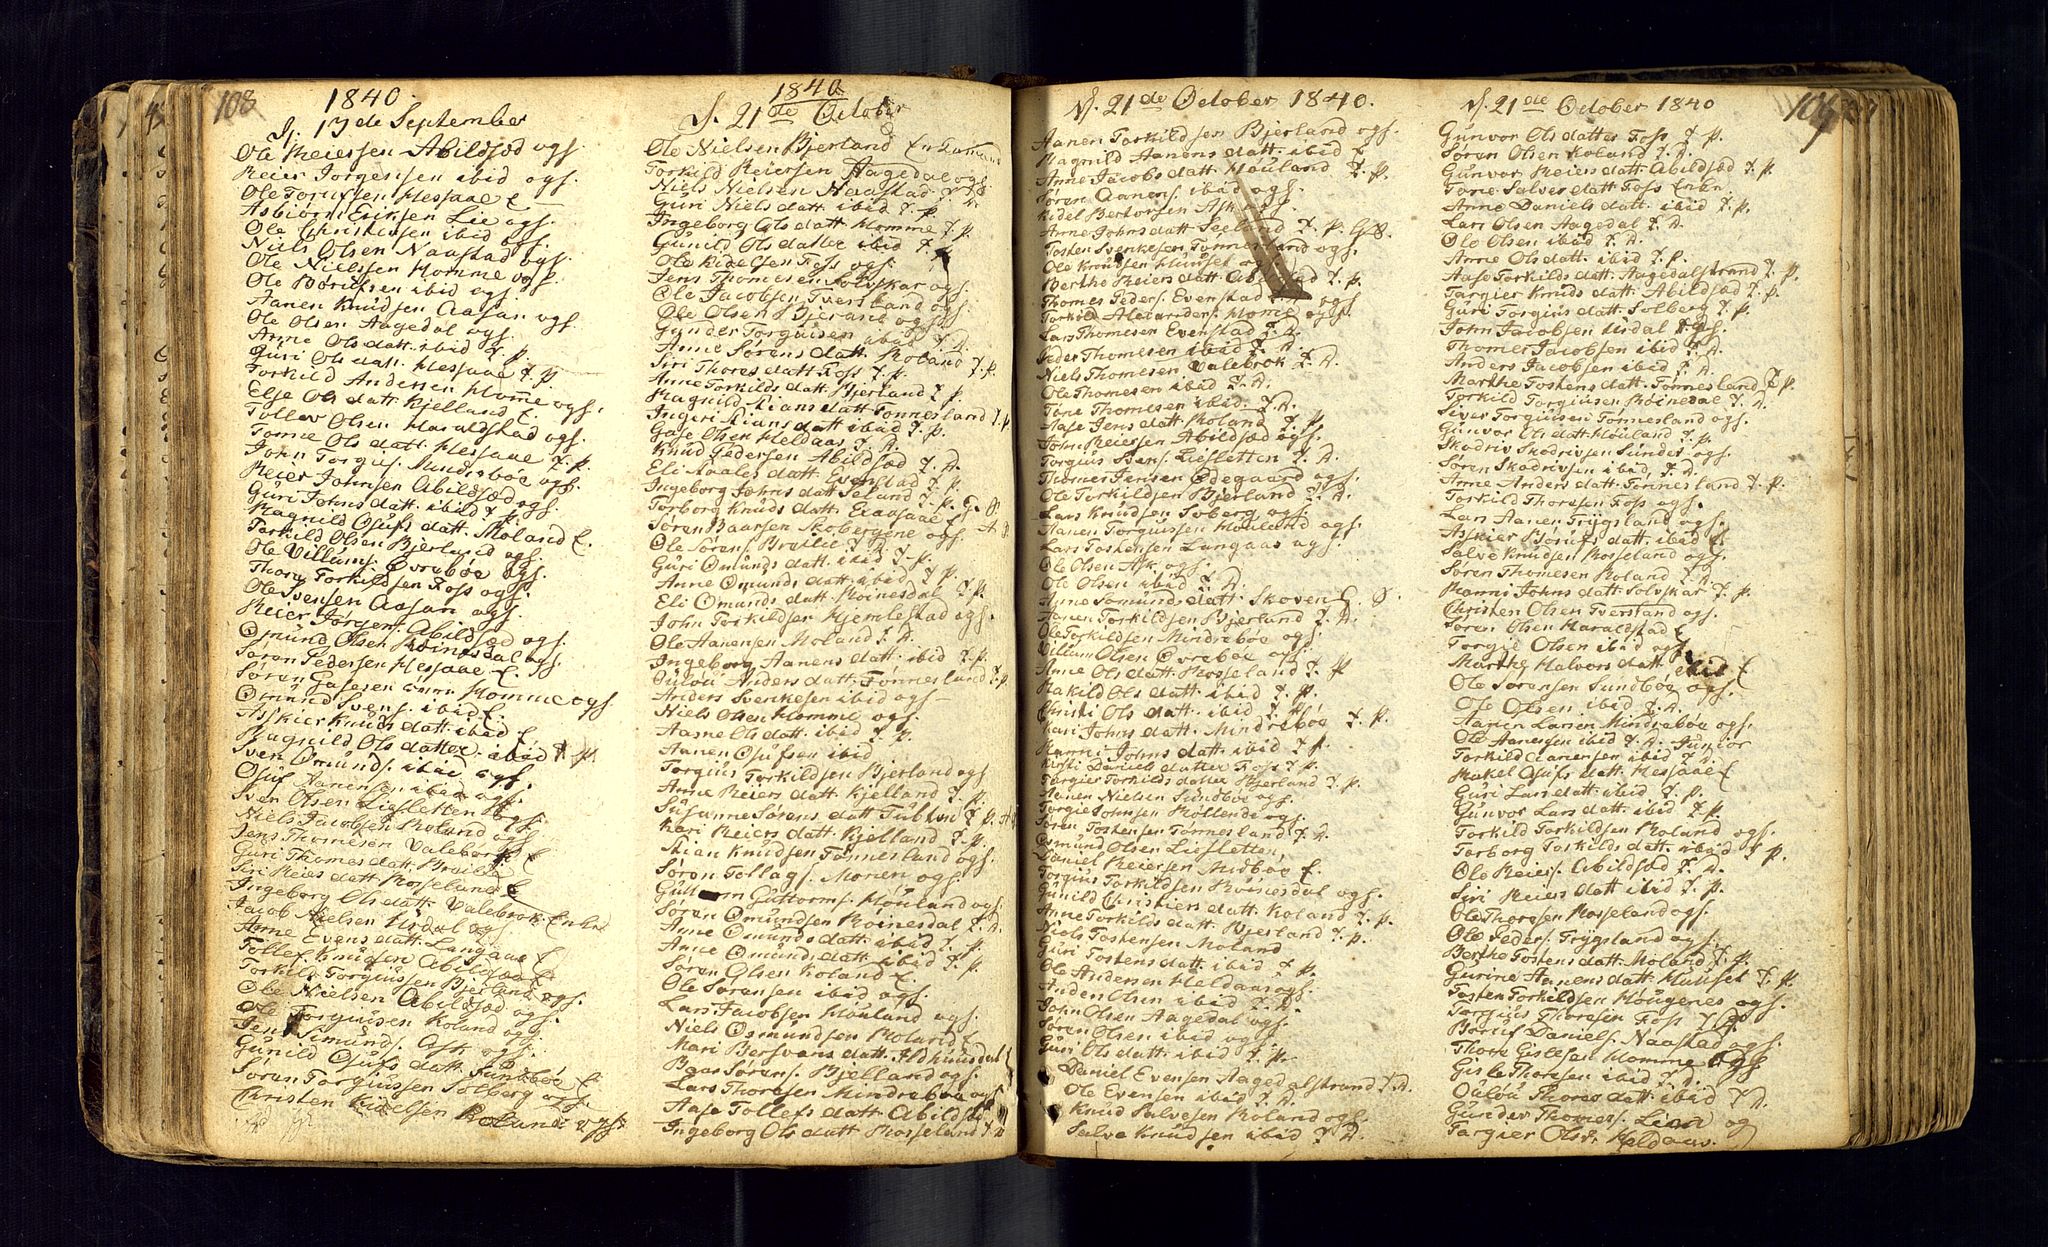 108
1840
d. 17de September
Ole Reiersen Abildsød ogs.
Reier Jorgensen ibid ogs.
Ole Messaae E
Asbiorn Eriksen Lie ogs.
Ole Christensen ibid
Niels Olsen Naastad ogs.
Ole Nielssen Homme ogs
Ole ibid ogs.
Aanen Knudsen Aasan ogs
Ole Olsen Aagedal ogs.
Anne Ols datt. ibid f. p.
Guri Ols datt. Messaae f. p.
Torkild Andersen Homme ogs.
Else Ols datt Kjelland E.
Tollev Olsen Haraldstad ogs.
Tonne Ols datt. Messaae f. p.
John Torgius. Mindrebøe ogs.
Reier Johnsen Abildsød ogs.
Guri Johns datt. ibid f. p.
Magnild Osufs datt. Moland E.
Torkild Olsen Bjerland ogs.
Ole Villums. Øvrebøe ogs.
Thore Torkildsen Foss ogs.
Ole Svensen Aasan ogs
Reier Jorgens. Abildsød ogs.
Omund Olsen Røinesdal ogs.
Søren Pedersen Messaae E.
Søren Gasesen Homme ogs
Omund Svens. ibid E.
Asskier Knuds datt. ibid E
Magnild Ols datter ibid
Sven Omunds. ibid ogs.
Osuf Aanensen ibid ogs.
Sven Olsen Liesletten ogs.
Niels Jacobsen Roland ogs
Jens Thomesen Valebrok E
Guri Thomes datt. Bruelie E
Siri Reiers datt Rosseland E
Ingeborg Ols datt. Valebrok Enke
Jacob Nielsen Urdal ogs
Anne Evens datt. Langaae E
Tollef Knudsen Abildsød E
Torkild Torgiussen Bjerland ogs.
Ole Nielsen Abildsød ogs.
Ole Torguisen Roland ogs
Jens Simunds. Ask ogs.
Gunild Osufs datt. Sundbøe E.
Søren Torgiussen Solberg ogs.
Christen Kidelsen Roland ogs.
1840
d. 21de October
Ole Nielsen Bjerland Enkemand
Torkild Reiersen Aagedal ogs
Niels Nielsen Haastad f. D.
Guri Niels datt ibid f. p.
Ingeborg Ols datt Homme f. p
Gunild Ols datter ibid f.
Ole Kidelsen Foss ogs.
Jens Thomesen Solvskar ogs.
Ole Jacobsen Tverstand ogs.
Ole Olsen Bjerland ogs
Gunder Torguisen ibid f. D.
Anne Sørens datt. Roland f. p.
Siri Thores datt Foss f. p.
Anne Torkilds datt. Bjerland f. p
Magnild Kians datt Tonnesland f. p.
Ingeri Kians datt ibid f. p.
Gase Olsen Heldaas f. D.
Knud Pedersen Abildsød f. D.
Eli Aales datt Evenstad f. p.
Ingeborg Johns datt Seland f. p. G. S.
Torborg Knuds datt. Eraasaae E
Søren Baarsen Skobergene ogs.
Ole Sørens. Brælie f. D.
Guri Omunds datt. ibid f. p.
Anne Omunds datt ibid f. p.
Eli Omunds datt Roinesdal f. p.
John Torkildsen Hjemlestad ogs.
Ole Aanensen Moland f. D.
Ingeborg Aanens datt. ibid f. p.
Oulou Anders datt. Tonnesland f. p
Anders Svenkesen ibid ogs
Niels Olsen Homme ogs.
Aasne Ols datt. ibid f. p.
Aanen Osufsen ibid
Torgius Torkildsen Bjerland ogs
Anne Reiers datt Kjelland f. p.
Susanne Sørens datt. f. p.
Kari Reiers datt. Kjelland f. p.
Kian Knudsen Tonnesland ogs.
Søren Tollags. Monen ogs.
Guttorm Guttorms. Houland ogs
Søren Omundsen Roinesdal f. D.
Anne Omunds datt. ibid f. p.
Anne Omunds datt. ibid f. p.
Søren Olsen Roland E.
Ole Sørensen ibid ogs.
Lars Jacobsen Houland ogs.
Niels Osmundsen Moland E
Mari Bersvans datt. Ildhusdal E
Baar Sørens. Bjelland ogs.
Lars Thoresen Mindrebøe ogs
Aase Tollefs datt Abildsød
Ingeborg Ols datt Rosseland f. p.
d. 21de October 1840.
Aanen Torkildsen Bjerland ogs.
Magnild Aanens datt. ibid E
Anne Jacobs datt Houland f. p.
Søren Aanens. ibid ogs.
Kidel Bertorsen Ask ogs.
Anne Johns datt Seeland f. p. G. S.
Tosten Svenkesen Tonnesland ogs.
Ole Knudsen Hunset ogs
Berthe Reiers datt Abildsød f. p.
Thomes Peders. Evenstad f. D. ogs
Torkild Alexanders. Home ogs.
Lars Thomesen Evenstad f. D.
Peder Thomesen ibid f. D.
Niels Thomesen Valebrok f. D.
Ole Thomesen ibid f. D.
Tone Thomesen ibid f. D.
Aase Jens datt Roland f. p.
John Reiersen Abildsød ogs.
Torgius Svens. Liesletten f. D.
Thomes Jensen Ødegaard ogs.
Ole Torkildsen Bjerland f. D.
Lars Knudsen Soberg ogs.
Aanen Torgiussen Houland ogs.
Lars Tostensen Lungaas ogs.
Ole Olsen Ask ogs.
Ole Olsen ibid f. D.
Anne Somunds datt. Skoven E. S.
Aanen Torkildsen Bjerland f. D.
Ole Torkildsen Mindrebøe ogs.
Villum Olsen Øvrebøe ogs.
Anne Ols datt Rosseland f. p
Rakild Ols datt ibid f. p.
Christi Ols datt. ibid f. p.
Mari Johns datt. Mindrebøe f. p.
Ranni Johns datt ibid f. p.
Kirsti Daniels datter Foss f. p.
Targier Torkilds datter Bjerland f. p.
Aanen Nielsen Sundbøe ogs.
Torgie Johnsen Rollende ogs.
Søren Tostensen Tonnesland f. D.
Osmund Olsen Liesletten
Daniel Reiersen Midbøe E.
Torgius Torkildsen Roinesdal ogs.
Gunild Christiens datt. Roland f. p.
Anne Torkilds datt. Bjerland f. p.
Niels Tostensen Moland
Guri Tostens datt ibid f. p.
Ole Andersen Heldaas ogs.
Anden Olsen ibid f. D.
John Olsen Aagedal ogs.
Søren Olsen ibid
Guri Ols datt. ibid f. p.
Daniel Evensen Aagedalstrand f. D.
Ole Evensen ibid f. D.
Knud Salvesen Roland ogs.
Salve Knudsen ibid f. D.
d. 21de October 1840
Gunvor Ols datter Foss f. p.
Søren Olsen Roland f. D.
Gunvor Reiers datt. Abildsød f. p
Tone Salves datt Foss Enke.
Anne Daniels datt. ibid f. p.
Lars Olsen Aagedal f. D.
Ole Olsen ibid f. D.
Anne Ols datt. ibid f. p.
Aase Torkilds datt. Aagedalstrand f. p.
Targier Knuds datt. Abildsød f. p.
Guri Torgius datt Solberg f. p.
John Jacobsen Urdal ogs.
Thomes Jacobsen ibid f. D.
Anders Jacobsen ibid f. D.
Marthe Tostens datt. Tonnesland f. p
Torkild Torgiusen Røinedal f. D.
Siver Torgiussen Tonnesland ogs.
Gunvor Ols datt Houland f. p.
Skadriv Skadrivsen Sunder ogs.
Søren Skadrivsen ibid f. D.
Anne Anders datt. Tonnesland f. p.
Torkild Thoresen Foss ogs.
Lars Aanen Frygsland ogs.
Asskier Borufs datt. ibid E
Salve Knudsen Rosseland ogs.
Søren Thomesen Roland f. D.
Ranni Johns datt. Solvskar f. p.
Christen Olsen Tverstand ogs.
Søren Olsen Haraldstad E
Torgie Olsen ibid ogs
Marthe Halvors datt. ibid E
Ole Sørensen Sundbøe ogs.
Ole Olsen ibid f. D.
Aanen Larsen Mindrebøe ogs.
Ole Aanensen ibid f. D. Junior
Torkild Aanensen ibid f. D.
Rakel Osufs datt. Messaae E
Guri Lars datt. ibid f. p.
Gunvor Lars datt. ibid f. p.
Torkild Torkildsen Roland ogs.
Torborg Torkilds datt. ibid f. p.
Ole Reiers. Abildsød f. D.
Siri Reiers datt ibid f. p.
Ole Thoresen Rosseland ogs.
Ole Peders. Frygsland ogs.
Berthe Tostens datt. Moland f. p.
Gurine Aanens datt. Hunset f. p.
Tosten Torkildsen Hougenes ogs.
Torgius Thoresen Foss f. D.
Boruf Daniels. Naastad ogs.
Thore Gislesen Homme ogs
Gisle Thoresen ibid f. D.
Oulou Thores datt. ibid f. D.
Gunder Thomes. Lien og
Targier Ols. Heldaas.